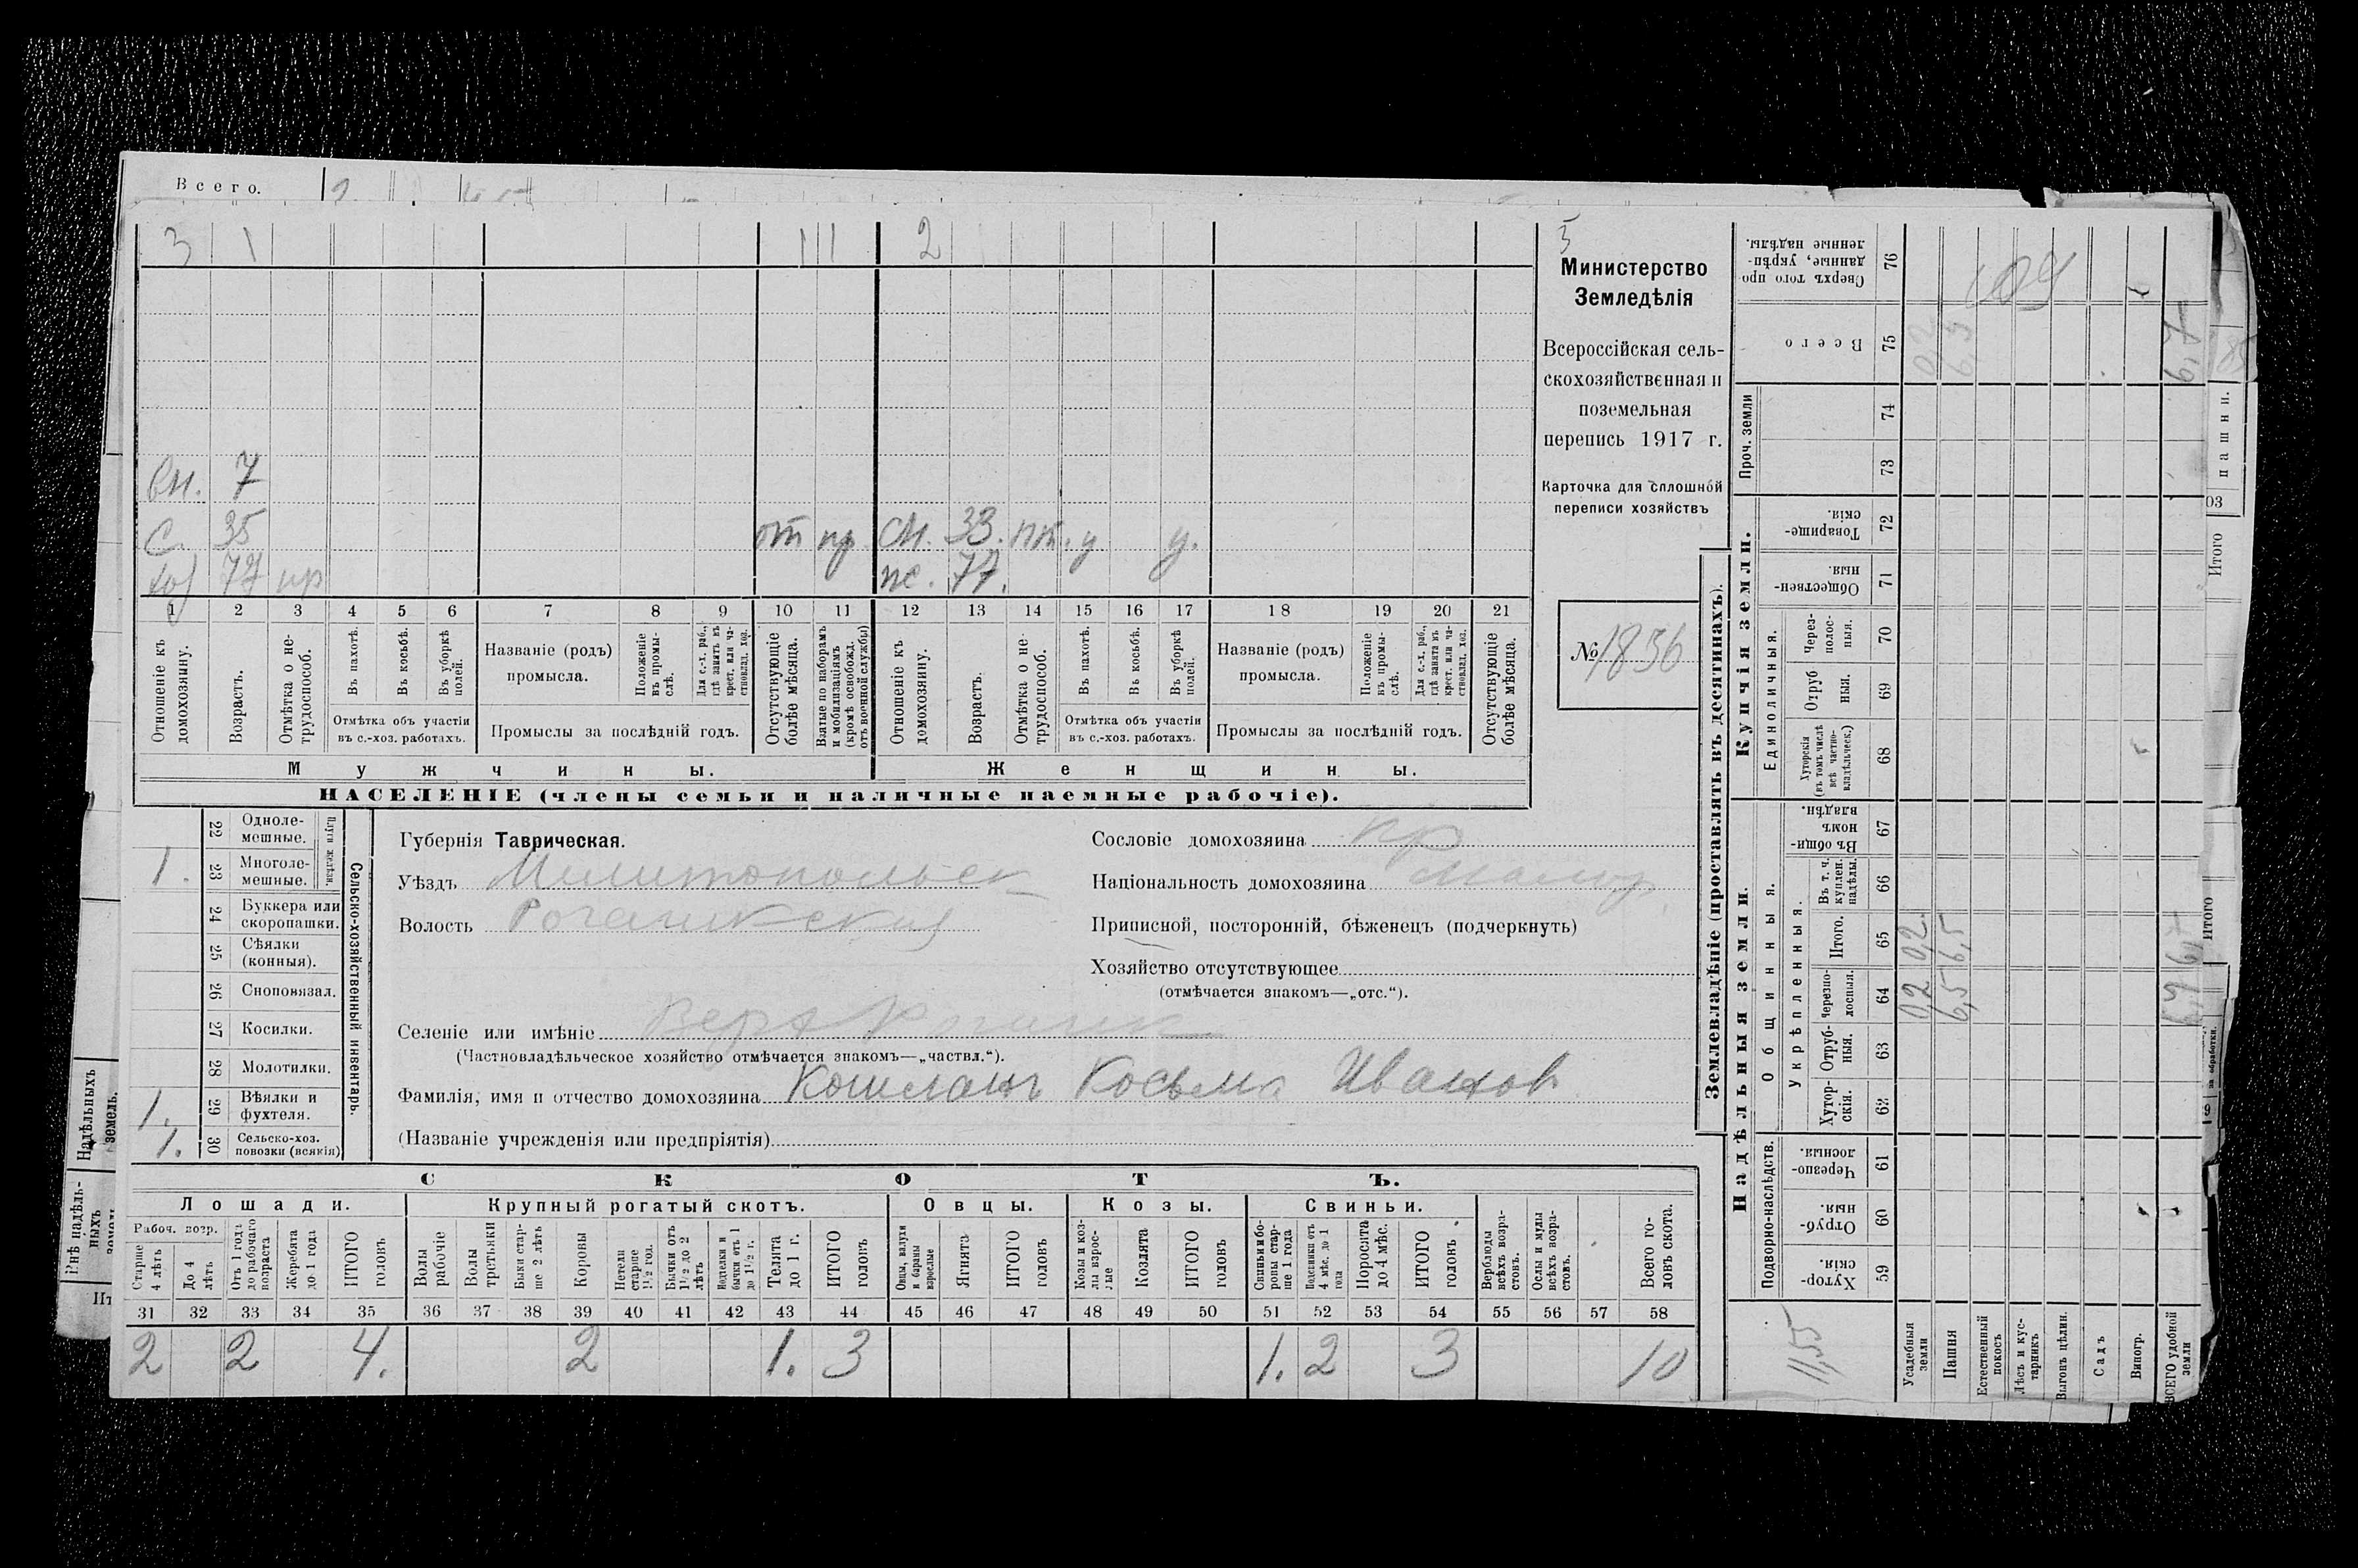 Всего.
3 1 1 1 2
вн. 7
с. 35 от пр. сн. 33. пт. у у.
хоз 77 пр ж. 77.
1 2 3 4 5 6 7 8 9 10 11 12 13 14 15 16 17 18 19 20 21
Отношеніе къ домохозяину.
Возрастъ.
Отмѣтка о нетрудоспособ.
Въ пахотѣ.
Въ косьбѣ.
Въ уборкѣ полей.
Отмѣтка объ участіи
въ с.-хоз. работахъ.
Названіе (родъ)
промысла.
Положеніе въ промыслѣ.
Для с.-х. раб., гдѣ занятъ въ крест. или частновлад. хоз.
Промыслы за послѣдній годъ.
Отсутствующіе болѣе мѣсяца.
Взятые по наборамъ и мобилизаціямъ (кромѣ освобожд. отъ военной службы)
Отношеніе къ домохозяину.
Возрастъ.
Отмѣтка о нетрудоспособ.
Въ пахотѣ.
Въ косьбѣ.
Въ уборкѣ полей.
Отмѣтка объ участіи
въ с.-хоз. работахъ.
Названіе (родъ)
промысла.
Положеніе въ промыслѣ.
Для с.-х. раб., гдѣ занята въ крест. или частновлад. хоз.
Промыслы за послѣдній годъ.
Отсутствующіе болѣе мѣсяца.
Мужчины. Женщины.
НАСЕЛЕНІЕ (члены семьи и наличные наемные рабочіе).
5
Министерство
Земледѣлія
Всероссійская сель-
скохозяйственная и
поземельная
перепись 1917 г.
Карточка для сплошной
переписи хозяйствъ
№ 1856
Сельско-хозяйственный инвентарь.
Плуги желѣзн.
22 Одноле-
мешные.
1. 23 Многоле-
мешные.
24 Буккера или
скоропашки.
25 Сѣялки
(конныя).
26 Сноповязал.
27 Косилки.
28 Молотилки.
1. 29 Вѣялки и
фухтеля.
1. 30 Сельско-хоз.
повозки (всякія)
Губернія Таврическая.
Уѣздъ Мелитопольск
Волость Рогачикская
Селеніе или имѣніе Верх Рогачик
(Частновладѣльческое хозяйство отмѣчается знакомъ—„частвл.“).
Фамилія, имя и отчество домохозяина Кошеланъ Косьма Иванов
(Названіе учрежденія или предпріятія)
Сословіе домохозяина кр
Національность домохозяина малор.
Приписной, посторонній, бѣженецъ (подчеркнуть)
Хозяйство отсутствующее
(отмѣчается знакомъ—„отс.“).
СКОТЪ.
Лошади. Крупный рогатый скотъ. Овцы. Козы. Свиньи.
Рабоч. возр.
Старше 4 лѣтъ
До 4 лѣтъ
Отъ 1 года до рабочаго возраста
Жеребята до 1 года
ИТОГО головъ
Волы рабочіе
Волы третьяки
Быки старше 2 лѣтъ
Коровы
Нетели старше 1½ год.
Бычки отъ 1½ до 2 лѣтъ
Подтелки и бычки отъ 1 до 1½ г.
Телята до 1 г.
ИТОГО головъ
Овцы, валухи и бараны взрослые
Ягнята
ИТОГО головъ
Козы и козлы взрослые
Козлята
ИТОГО головъ
Свиньи и боровы старше 1 года
Подсвинки отъ 4 мѣс. до 1 года
Поросята до 4 мѣс.
ИТОГО головъ.
Верблюды всѣхъ возрастовъ.
Ослы и мулы всѣхъ возрастовъ.
Всего головъ скота.
31 32 33 34 35 36 37 38 39 40 41 42 43 44 45 46 47 48 49 50 51 52 53 54 55 56 57 58
2 2 4. 2 1. 3 1. 2 3 10
Землевладѣніе (проставлять въ десятинахъ).
Надѣльныя земли. Купчія земли. Проч. земли
Подворно-наслѣдств.
Хуторскія. 59
Отрубныя. 60
Черезполосныя. 61
Общинныя.
Укрѣпленныя.
Хуторскія. 62
Отрубныя. 63
Черезполосныя. 64
Итого. 65
Въ т. ч. куплен. надѣлы. 66
Въ общинномъ владѣн. 67
Единоличныя.
Хуторскія (въ томъ числѣ всѣ частновладѣльческ.) 68
Отрубныя. 69
Черезполосныя. 70
Общественныя. 71
Товарищескія. 72
73
74
Всего 75
Сверхъ того проданные, укрѣпленные надѣлы. 76
11,55
Усадебныя земли 0,2 0,2 0,2
Пашня 6,5 6,5 6,5
Естественный покосъ
Лѣсъ и кустарникъ
Выгонъ цѣлин.
Садъ
Виногр.
ВСЕГО удобной земли 6,7
109
пашни.
03
Итого
Итого
Надѣльныхъ земель.
Внѣ надѣльныхъ